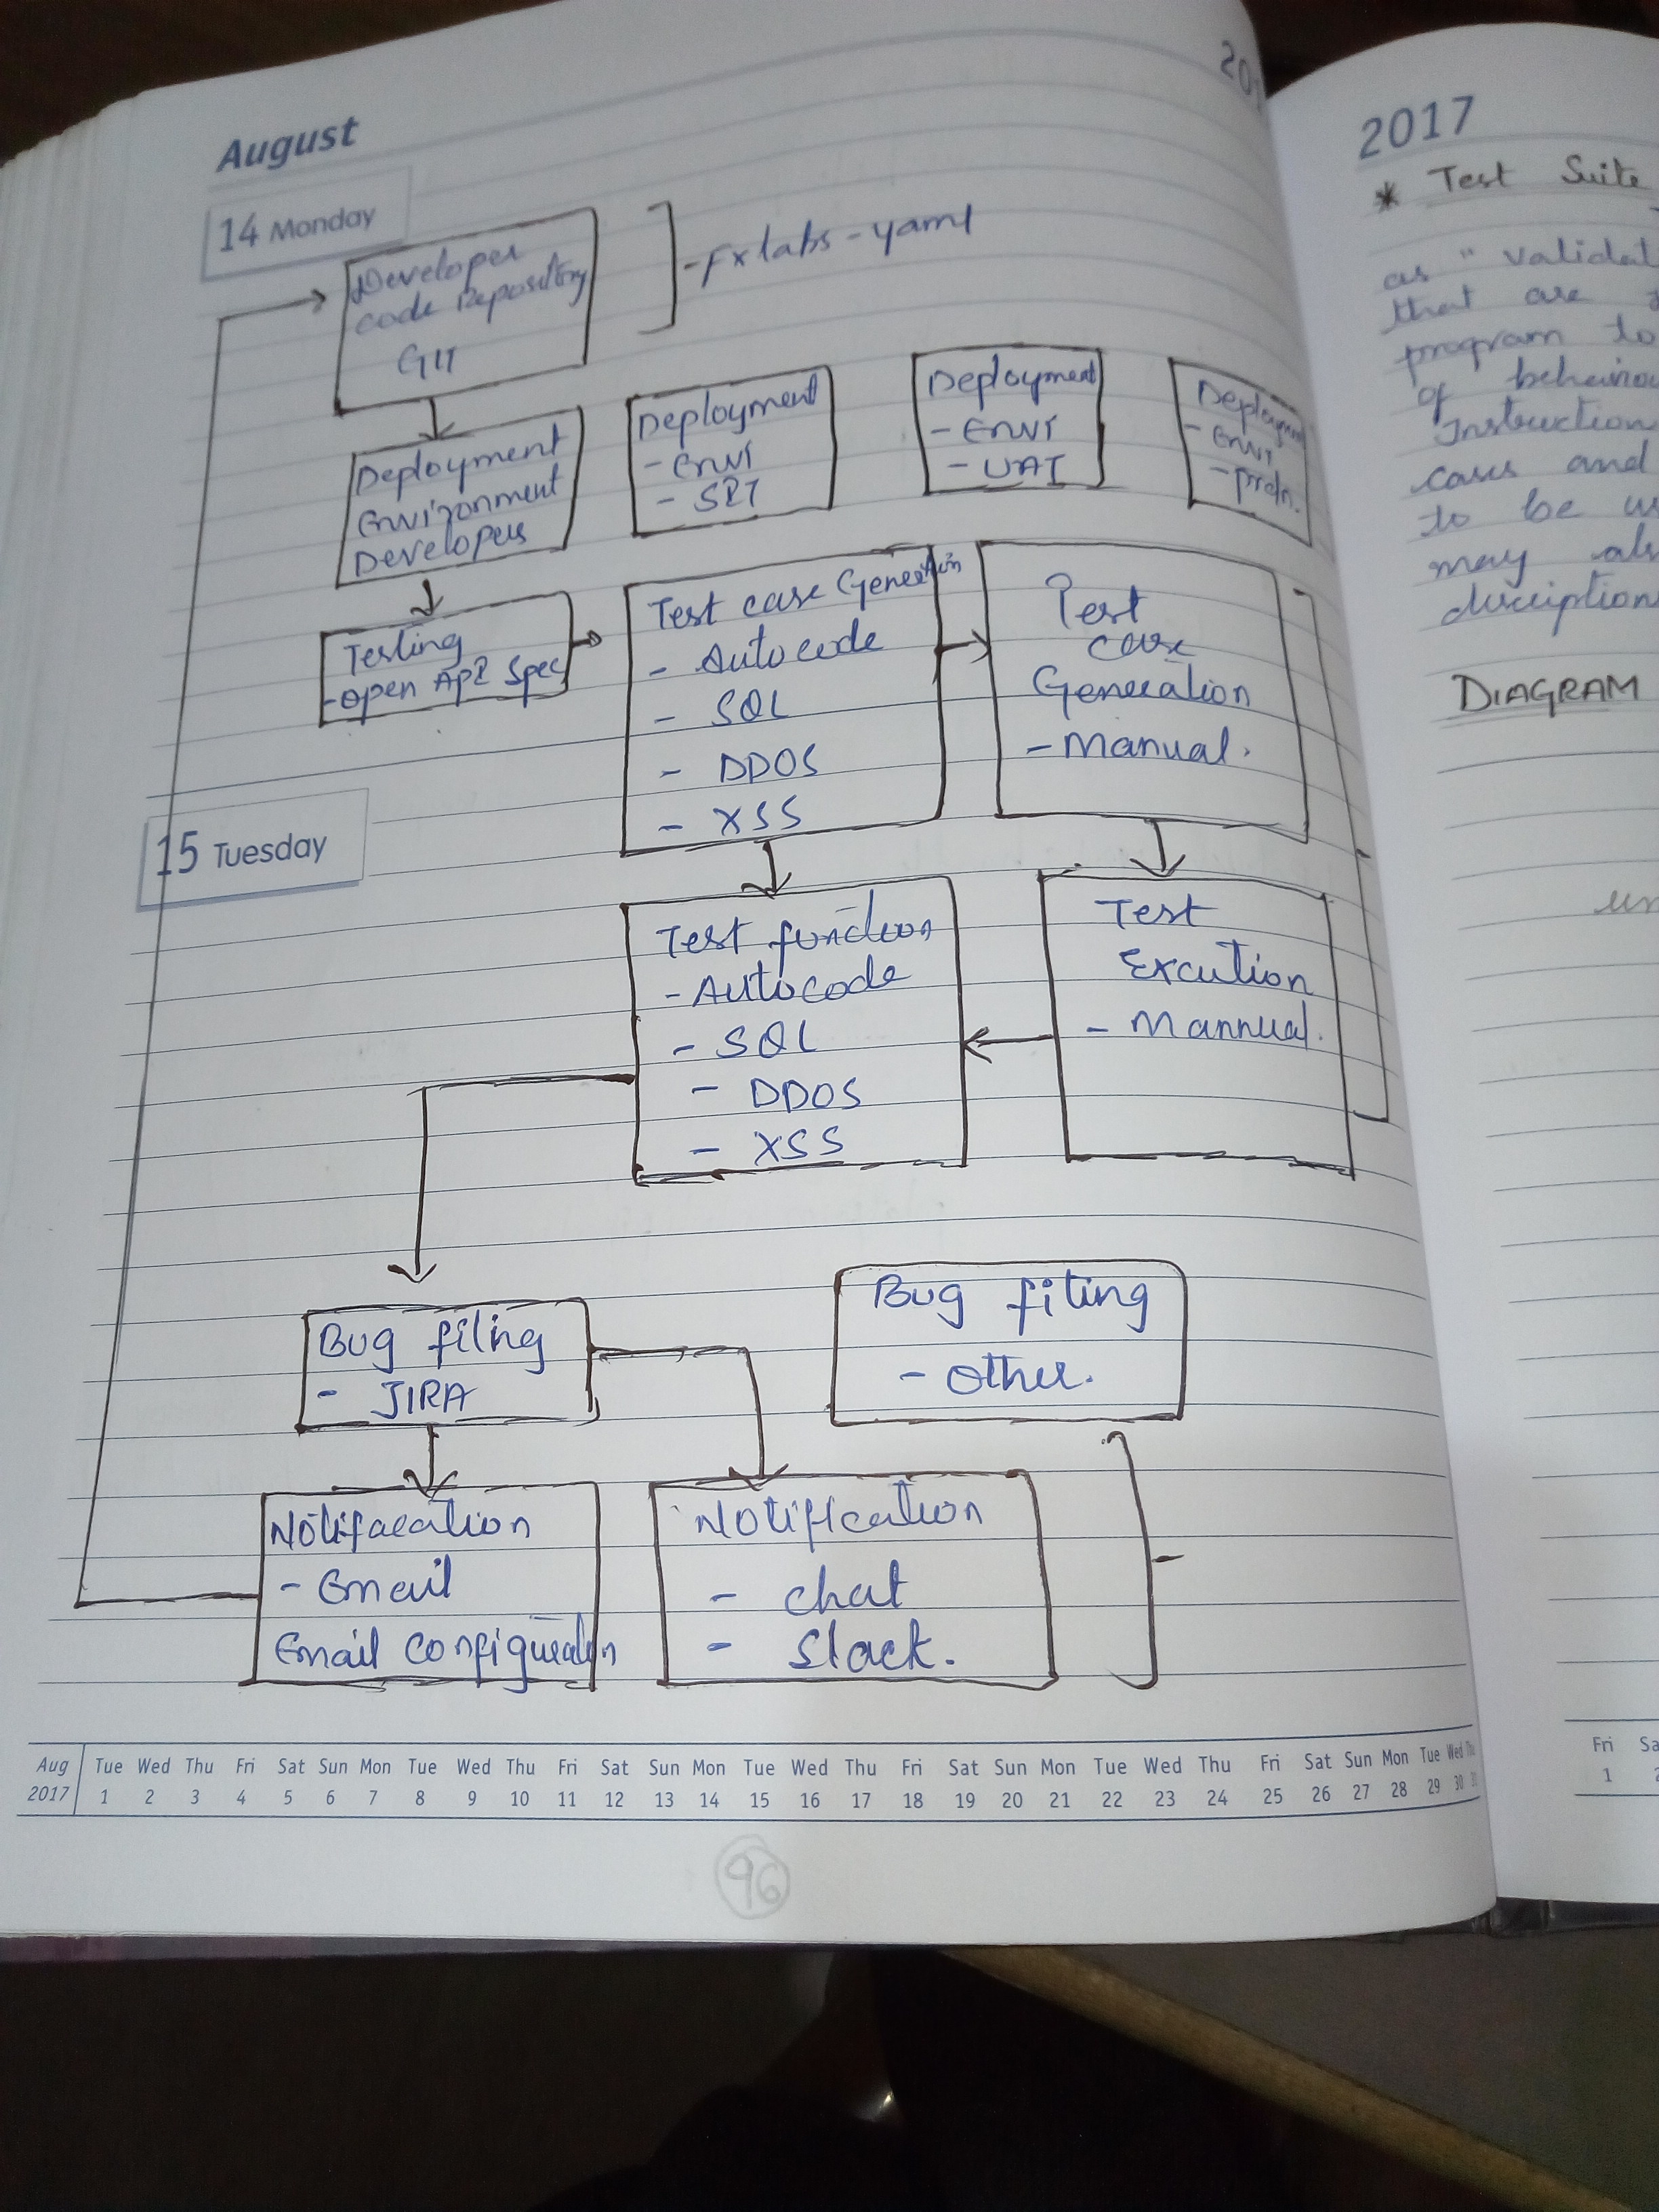 August
14 Monday
Developer
code Repository
GIT
-Fxlabs-yaml
Deployment
Environment
Developers
Deployment
- Envi
- SPT
Deployment
- Envi
- UAT
Deployment
- Envi
- prdn.
Testing
-open API Spec
Test case Generation
- Autocode
- SQL
- DDOS
- XSS
Test
case
Generation
- Manual.
15 Tuesday
Test function
- Autocode
- SQL
- DDOS
- XSS
Test
Excution
- Mannual.
Bug filing
- JIRA
Bug fiting
- Other.
Notifacation
- Email
Email configuration
Notification
- chat
- Slack.
Aug Tue Wed Thu Fri Sat Sun Mon Tue Wed Thu Fri Sat Sun Mon Tue Wed Thu Fri Sat Sun Mon Tue Wed Thu Fri Sat Sun Mon Tue Wed Thu
2017 1 2 3 4 5 6 7 8 9 10 11 12 13 14 15 16 17 18 19 20 21 22 23 24 25 26 27 28 29 30 31
96
2017
* Test Suite
as "validat
that are
program to
of behaviou
Instruction
cases and
to be us
may als
discription
DIAGRAM
Fri Sa
1 2